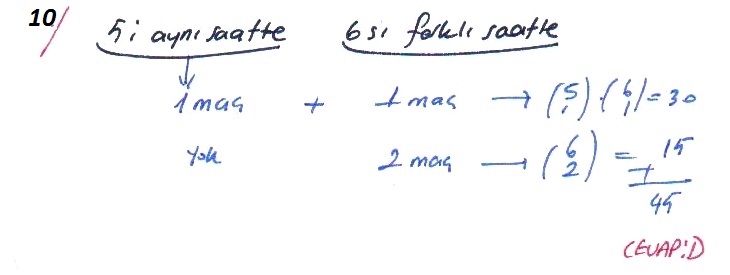 10/ 5i aynı saatte 6sı farklı saatte
1 maç + 1 maç → (5 1) · (6 1) = 30
Yok 2 maç → (6 2) = 15
+
45
CEVAP: D